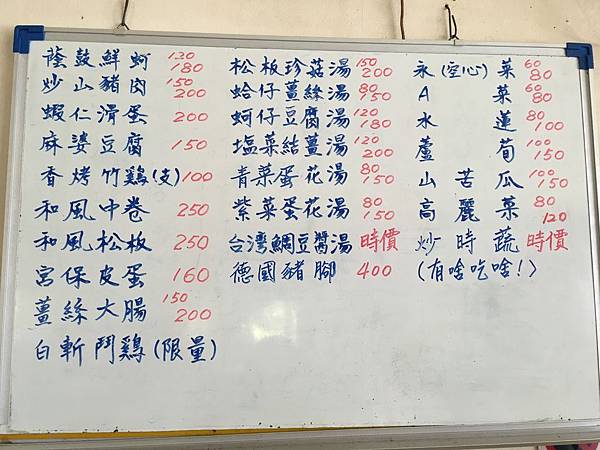 蔭鼓鮮蚵 120 180
炒山豬肉 150 200
蝦仁滑蛋 200
麻婆豆腐 150
香烤竹鷄(支) 100
和風中卷 250
和風松板 250
宮保皮蛋 160
薑絲大腸 150 200
白斬鬥鷄(限量)
松板珍菇湯 150 200
蛤仔薑絲湯 80 150
蚵仔豆腐湯 120 180
塩菜結薑湯 120 200
青菜蛋花湯 80 150
紫菜蛋花湯 80 150
台灣鯛豆醬湯 時價
德國豬腳 400
永(空心)菜 60 80
A菜 60 80
水蓮 80 100
蘆荀 100 150
山苦瓜 100 150
高麗菜 80 120
炒時蔬 時價
(有啥吃啥!)